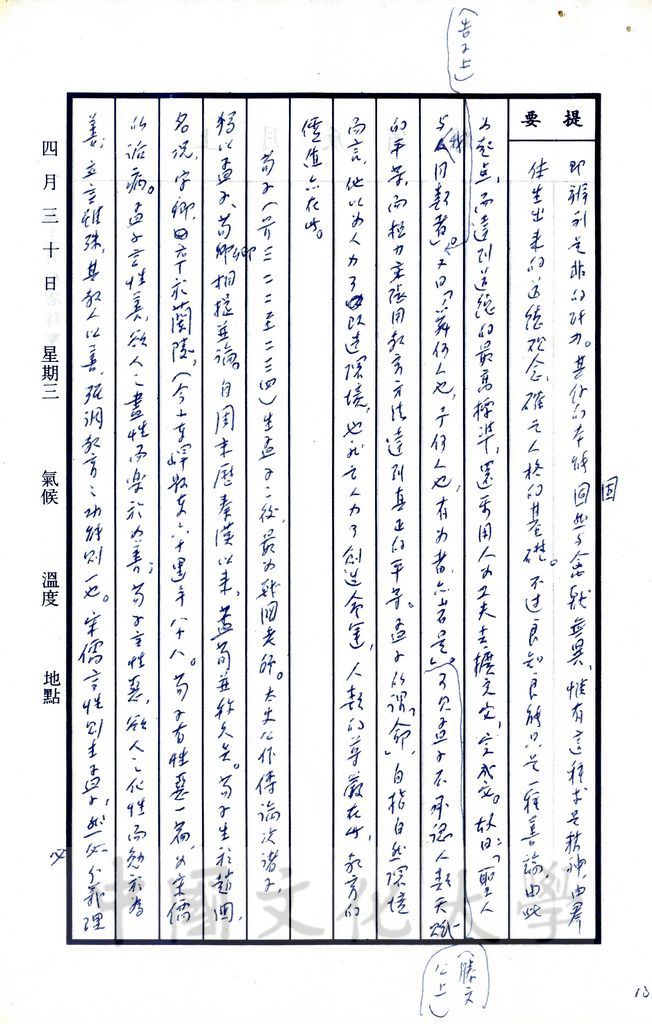 提要
即辨別是非的能力。其他的本能固然與禽獸無異，惟有這種求是精神，由與
俱生出來的道德觀念，確立人格的基礎。不過良知良能只是一種善端，由此
為起點，而達到道德的最高標準，還要用人為工夫去擴充它，完成它。故曰：「聖人
與我同類者」。（告子上）又曰「舜何人也，予何人也，有為者，亦若是」。（滕文公上）可見孟子不承認人類天賦
的平等，而極力主張用教育方法達到真正的平等。孟子所謂「命」，自指自然環境
而言，他以為人力可以改造環境，也就是人力可創造命運，人類的尊嚴在此，教育的
價值亦在此。
荀子（前三二二至二三四）生孟子之後，最為戰國老師。太史公作傳論次諸子，
獨以孟子、荀卿相提並論。自周末歷秦漢以來，孟荀並稱久矣。荀子生於趙國，
名況，字卿，卒於蘭陵，（今山東嶧縣東六十里）年八十八。荀子有性惡一篇，為宋儒
所詬病。孟子言性善，欲人之盡性而樂於為善；荀子言性惡，欲人之化性而勉於為
善；立言雖殊，其教人以善，強調教育之功能則一也。宋儒言性則主孟子，然必分義理
四月三十日 星期三 氣候 溫度 地點
中國文化大學
13